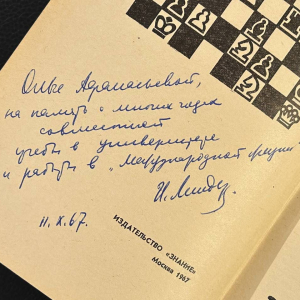 Олье Афанасьевой,
на память о многих годах
совместной
учебы в университете
и работы в "Международной
И. Линдер
11.X.67.
ИЗДАТЕЛЬСТВО «ЗНАНИЕ»
Москва 1967